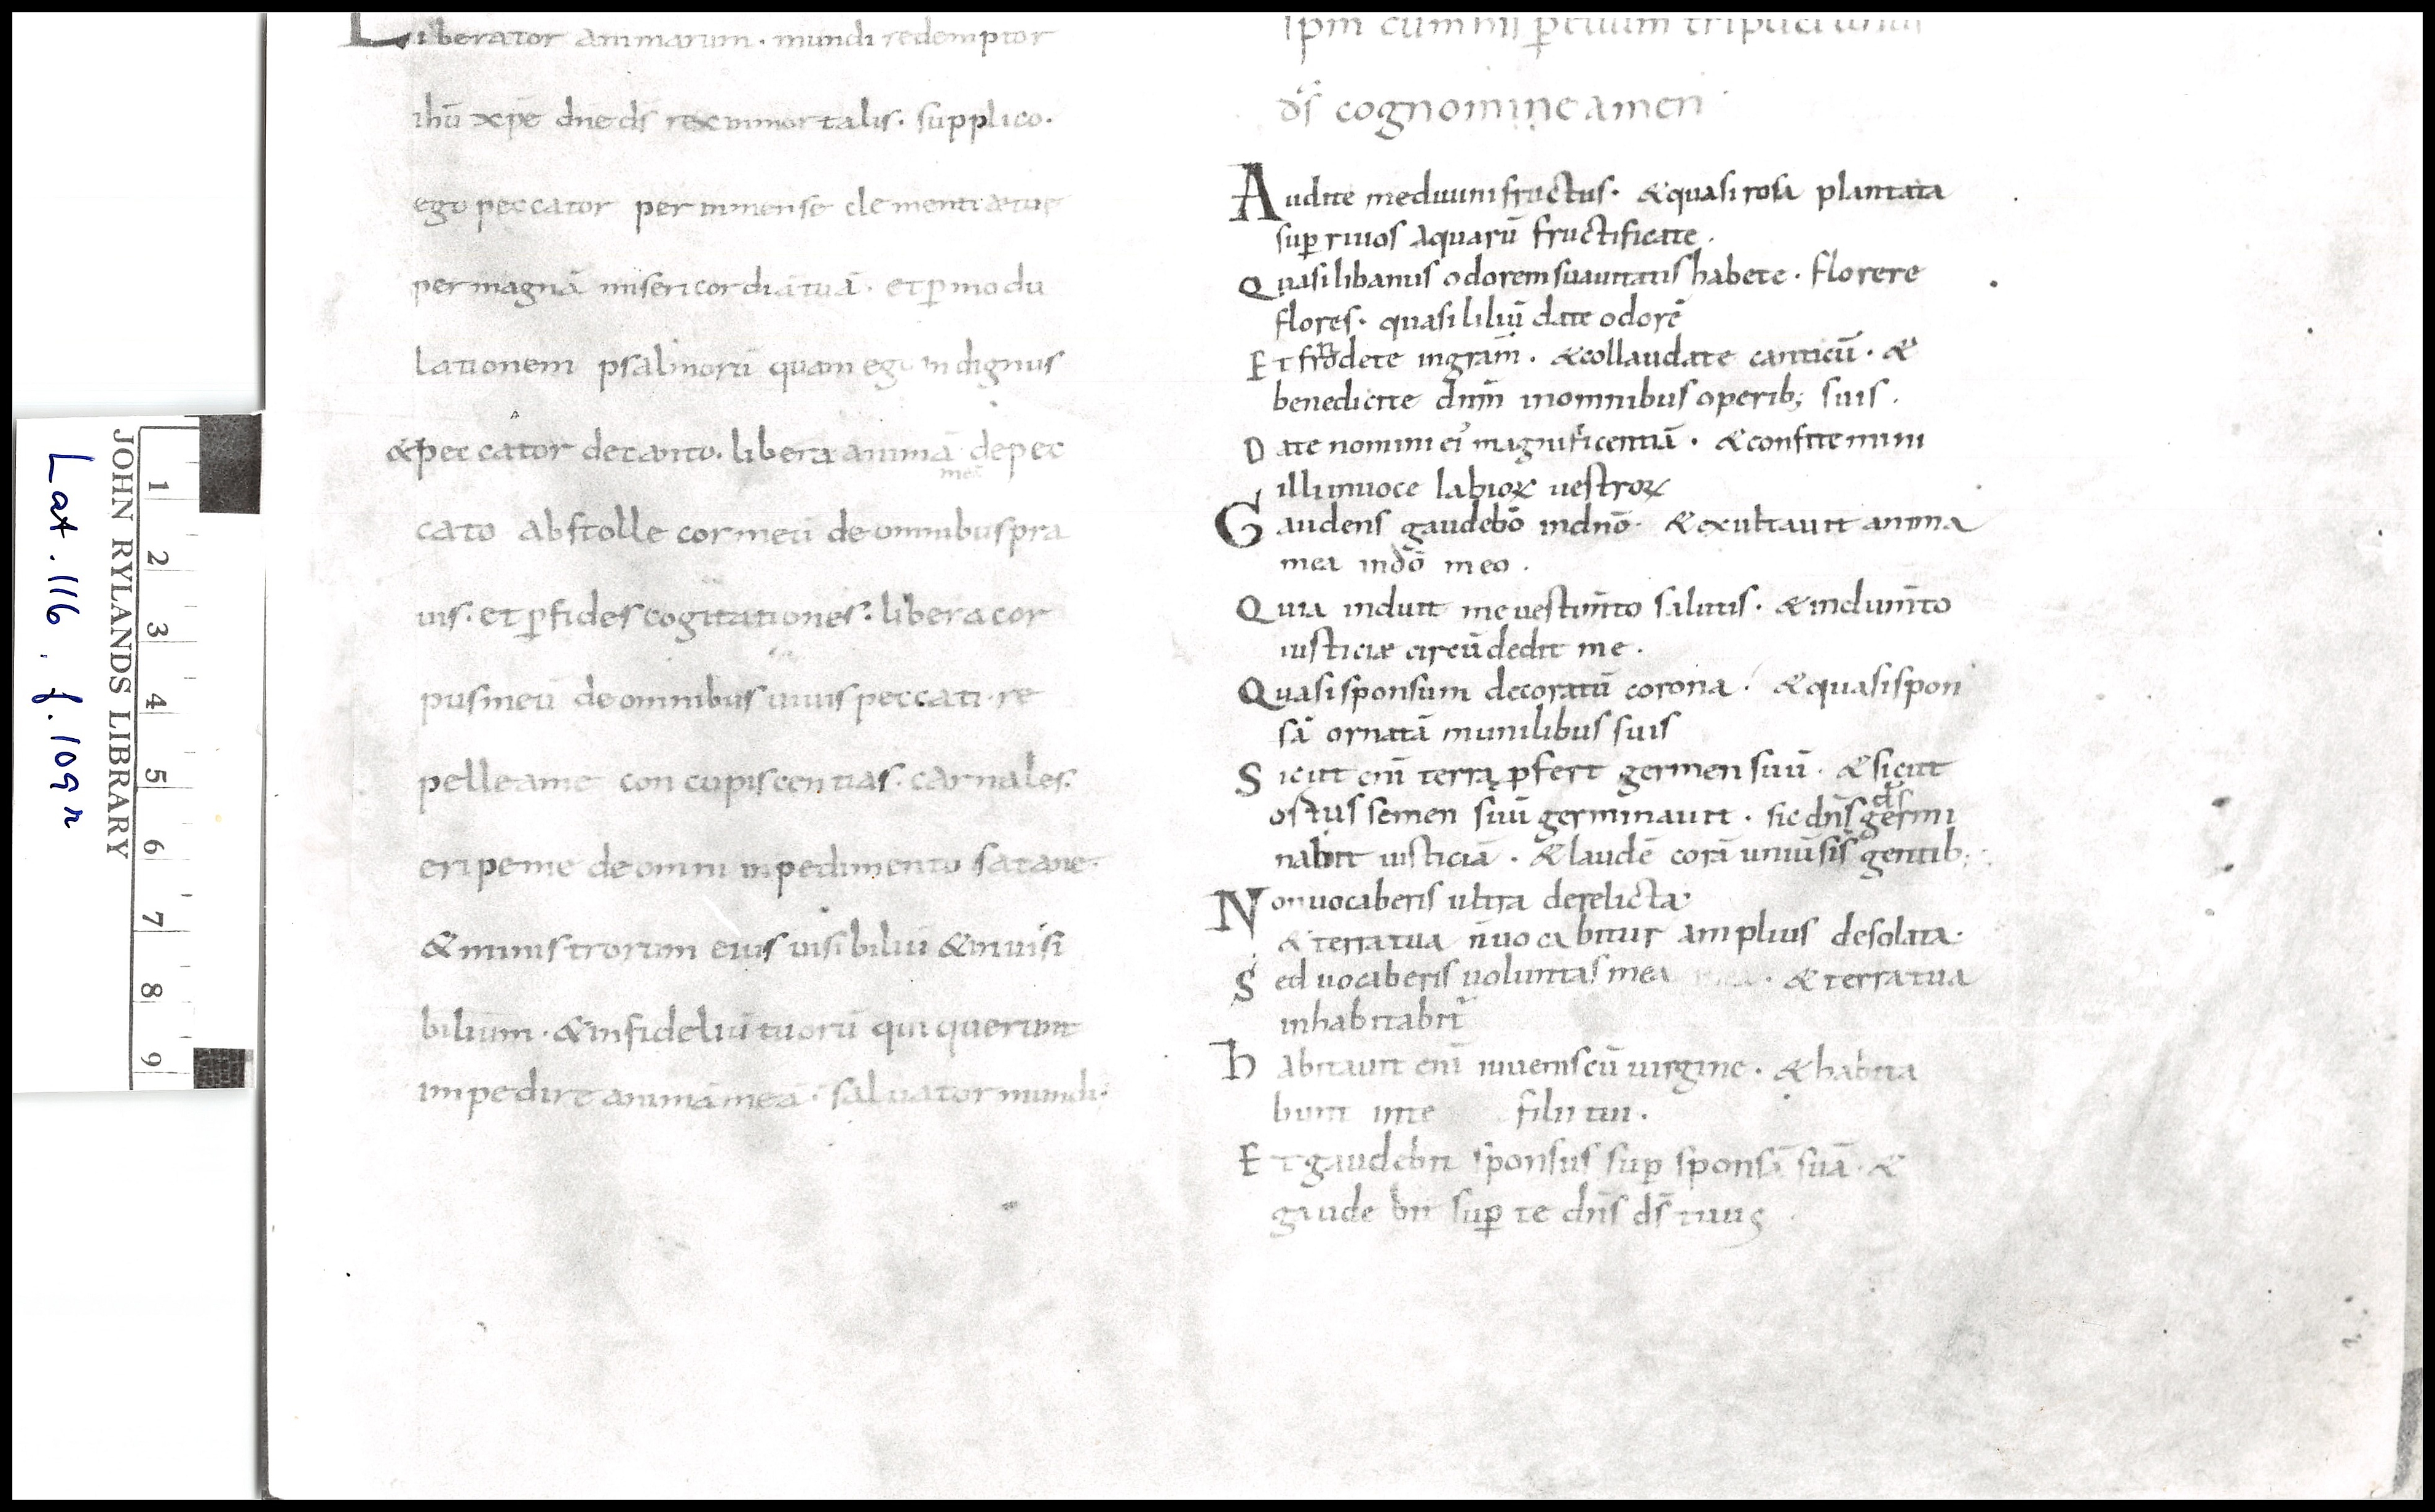 Liberator animarum. mundi redemptor
ihū xpē dn̄e ds̄ rex inmortalis. supplico.
ego peccator per inmense clementiæ tue
per magnā misericordiā tuā. et p̱ modu
lationem psalmorū quam ego indignus
& peccator decanto. libera animā de pec
meā
cato abstolle cor meū de omnibus pra
uis. et p̱fides cogitationes. libera cor
pus meū de omnibus uiuis peccati. re
pelle a me concupiscentias. carnales.
eripe me de omni inpedimento satane.
& ministrorum eius uisibiliū & inuisi
bilium. & infideliū tuorū qui querunt
impedire animā meā. saluator mundi.
ds̄ cognomine amen
Audite me diuum fructus. & quasi rosa plantata
sup̱ riuos aquarū fructificate.
Quasi libanus odorem suauitatis habete. florere
flores. quasi liliū date odorē
Et frōdete in gram̄. & collaudate canticū. &
benedicite dnm̄ in omnibus operib; suis.
Date nomini ei' magnificentiā. & confitemini
illi in uoce labioꝝ uestroꝝ
Gaudens gaudebō in dnō. & exultauit anima
mea in dō meo.
Quia induit me uestim̄to salutis. & indum̄to
iusticiæ circūdedit me.
Quasi sponsum decoratū corona. & quasi spon
sā ornatā munilibus suis
Sicut enī terra ꝓfert germen suū. & sicut
ostus semen suū germinauit. sic dn̄s ds̄ germi
nabit iusticiā. & laudē corā uniūsis gentib;
Non uocaberis ultra derelicta
& terra tua n̄ uocabitur amplius desolata.
Sed uocaberis uoluntas mea. & terra tua
inhabitabit'
Habitauit enī iuuenis cū uirgine. & habita
bunt in te filii tui.
Et gaudebit sponsus sup̱ sponsā suā. &
gaudebit sup̱ te dn̄s ds̄ tuus
JOHN RYLANDS LIBRARY
1 2 3 4 5 6 7 8 9
Lat. 116. f. 109r